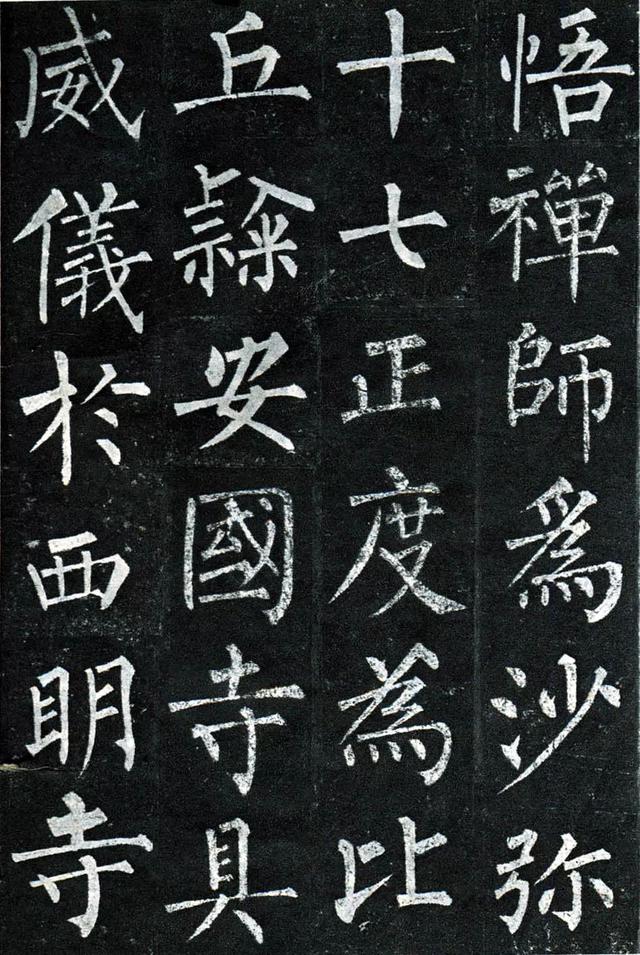 悟禪師為沙弥
十七正度為比
丘𥜥安國寺具
威儀於西明寺